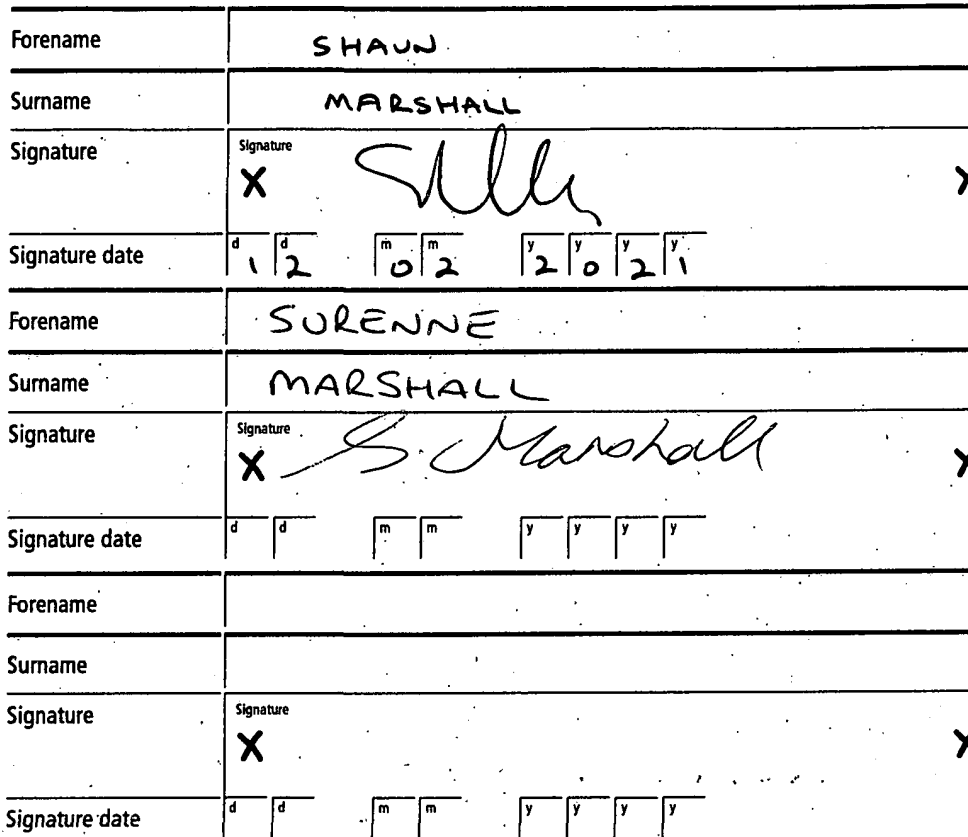 Forename SHAUN
Surname MARSHALL
Signature Signature
X X
Signature date d1 d2 m0 m2 y2 y0 y2 y1
Forename SURENNE
Surname MARSHALL
Signature Signature
X S. Marshall X
Signature date d d m m y y y y
Forename
Surname
Signature Signature
X X
Signature date d d m m y y y y